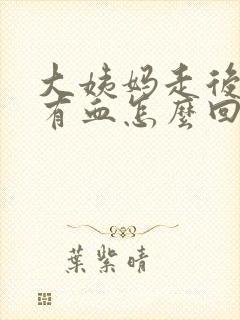 大姨妈走後
有血怎麼回
葉紫晴